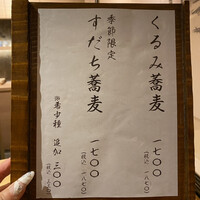 くるみ蕎麦 一七〇〇
(税込 一八七〇)
季節限定
すだち蕎麦 一七〇〇
(税込 一八七〇)
追加 三〇〇